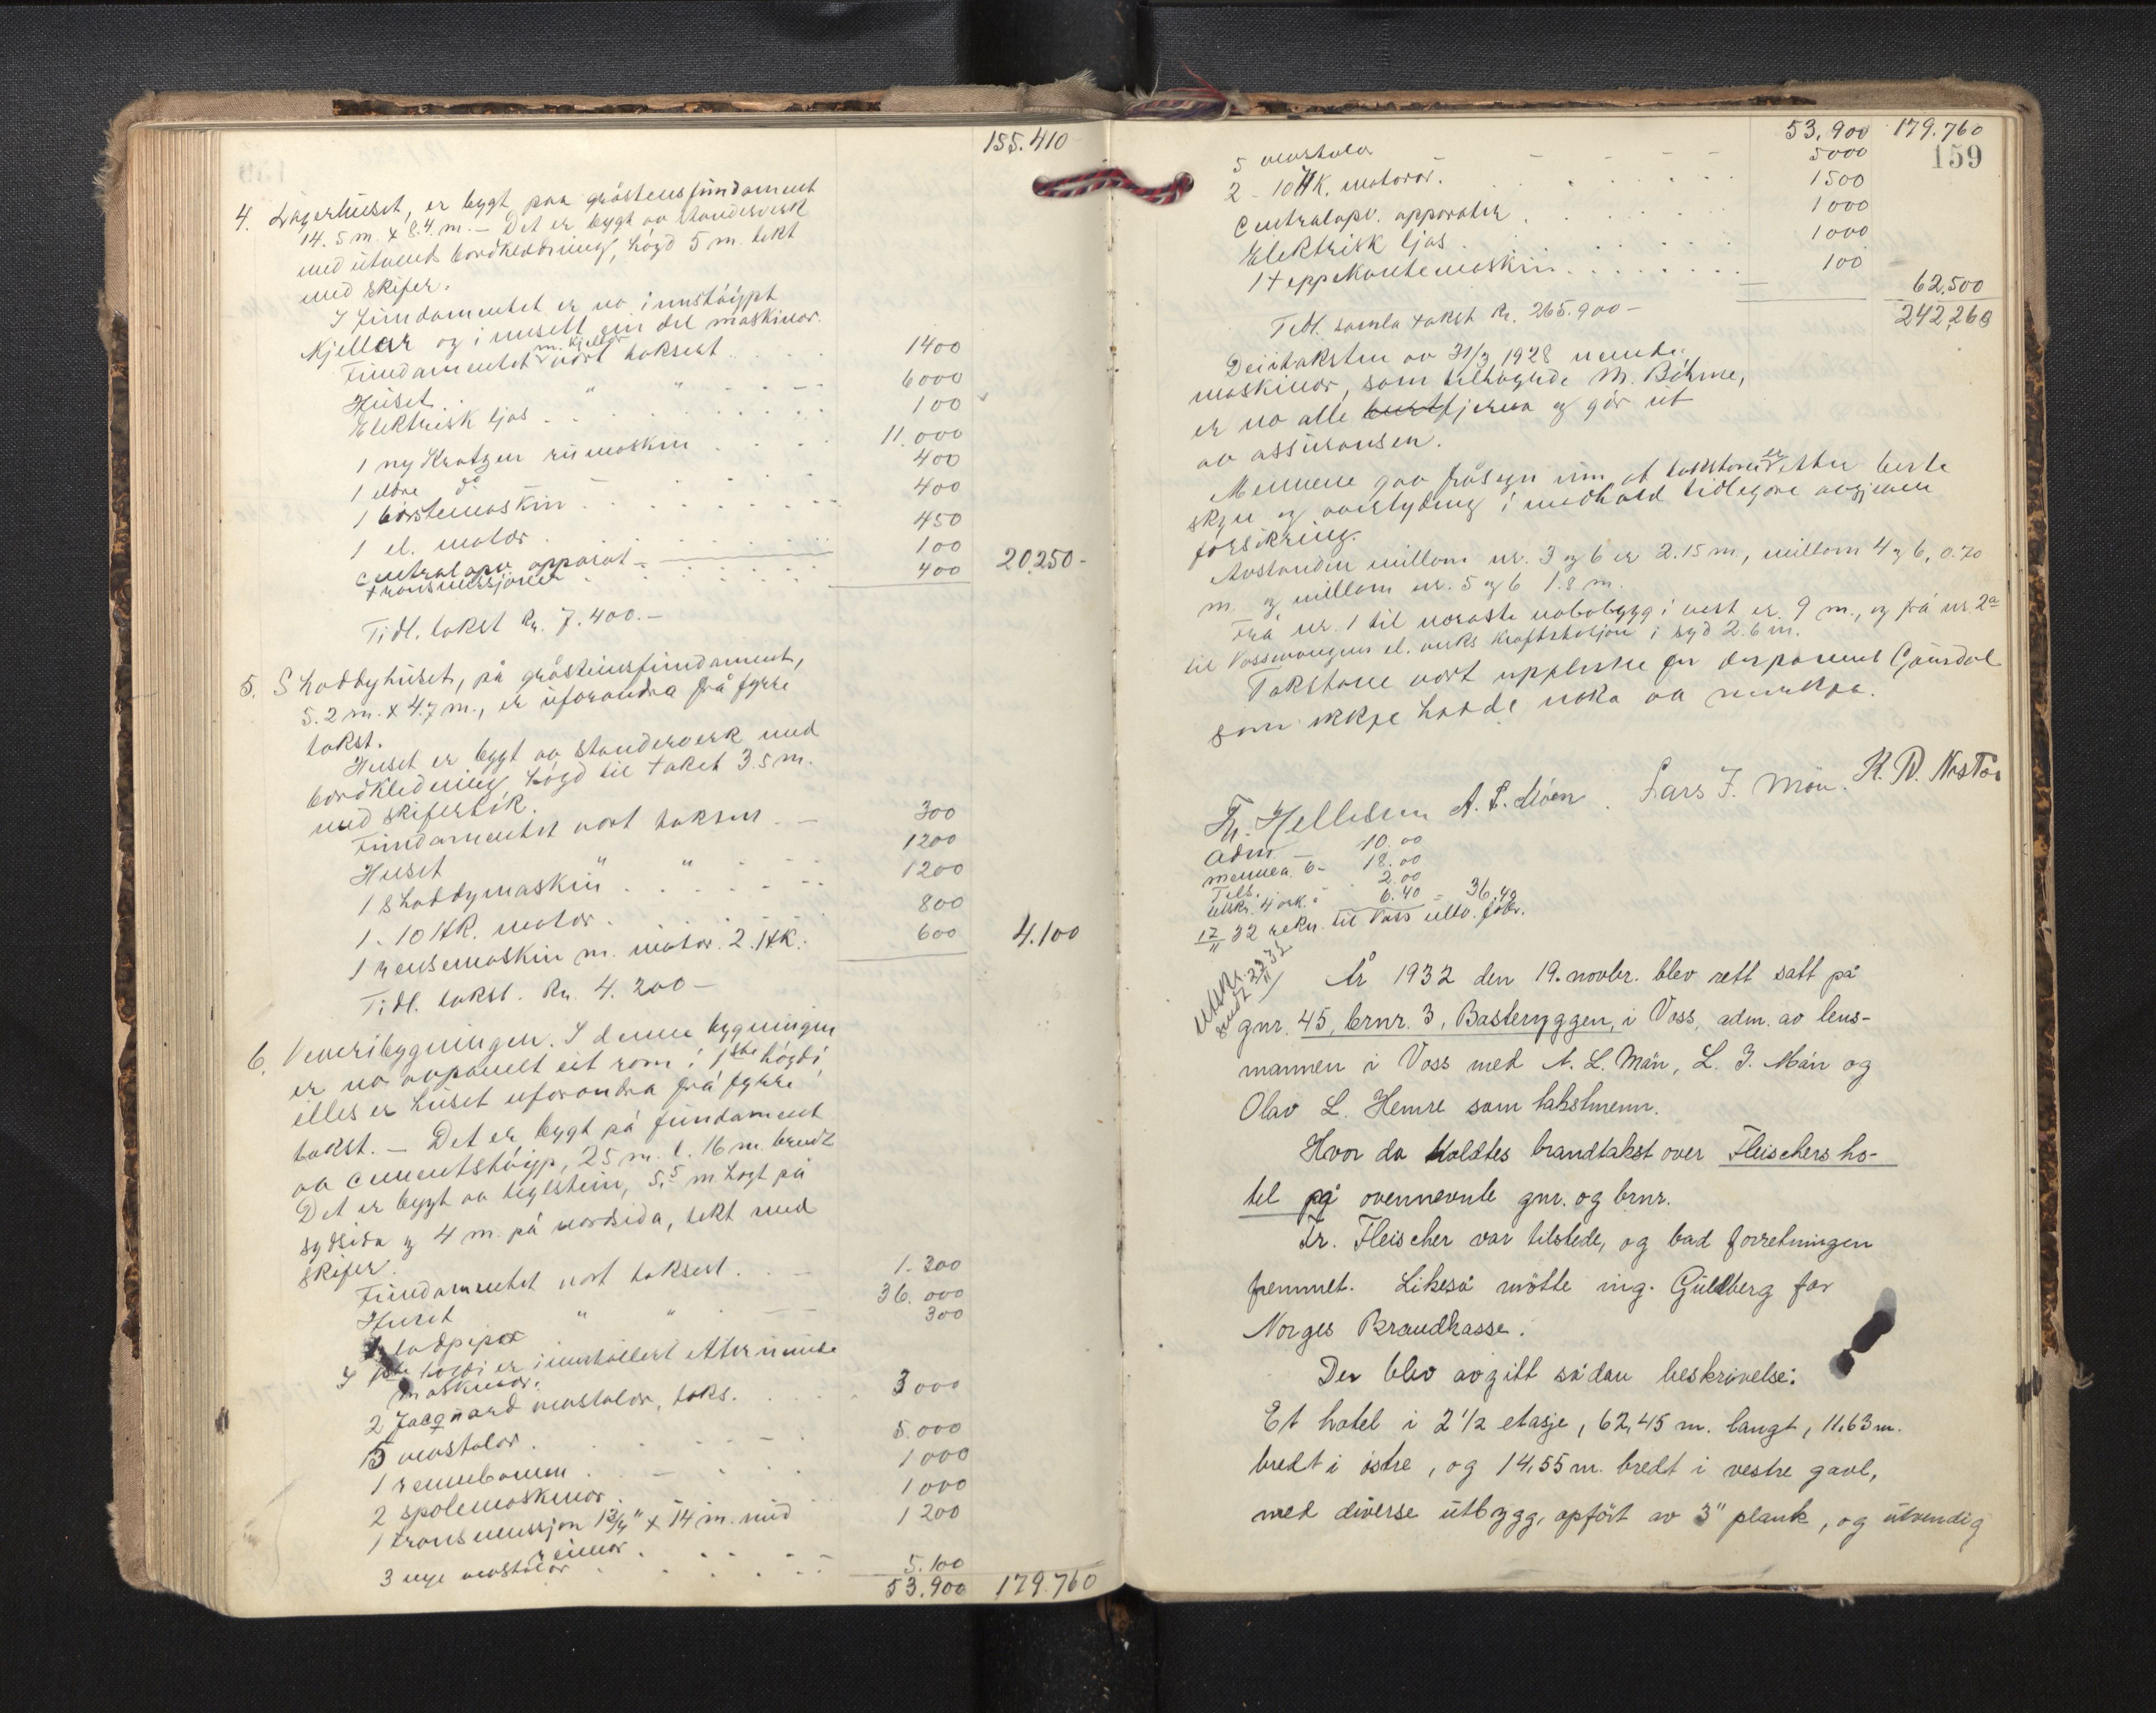 155.410
4. Lagerhuset, er bygt paa gråsteinsfundament
14.5 m. x 8.4. m. – Det er bygt av standerverk
med utvend. bordklædning, högd 5 m. tekt
med skifer.
I fundamentet er no innstöypt
kjellar og innsett ein del maskinor.
Fundamentet m. kjellar vart taksert . . . 1400
Huset " " - - - 6000
Elektrisk ljos . . . 100
1 ny Kratzen riimaskin . . . 11.000
1 eldre do . . . 400
1 börstemaskin . . . 400
1 el. motor . . . 450
Centralopv. apparat . . . 100
transmissjoner . . . 400 20250-
Tidl. takst kr. 7.400.–
5. Shoddyhuset, på gråsteinsfundament,
5.2 m. x 4.7 m., er uforandra frå fyrre
takst.
Huset er bygt av standerverk med
bordkledning, högd til taket 3.5 m.
med skifertak.
Fundamentet vart taksert . – 300
Huset " " - - - 1200
1 shoddymaskin . . . 1200
1. 10 HK. motor . . . 800
1 rensemaskin m. motor 2. HK. 600 4.100
Tidl. takst. Kr. 4.200–
6. Veveribygningen. I denne bygningen
er no avpanelt eit rom i 1ste högdi,
elles er huset uforandra frå fyrre
takst. – Det er bygt på fundament
av cementstöyp, 25 m. l. 16 m. bredt
Det er bygt av teglstein, 5.5 m högt på
sydsida og 4 m. på nordsida, tekt med
skifer.
Fundamentet vart taksert . – 1.300
Huset " " - - - 36.000
1 ladpipa 300
I 1ste högdi er innstallert etternemnde
maskinor.
2 Jacquard vevstolar, taks. . . . 3000
5 vevstolar . . . 5.000
1 rennebommen . . . 1000
2 spolemaskinor . . . 1000
1 transmissjon 1 3/4" x 14 m. med
reimar . . . 1200
3 nye vevstolar . . . 5.100
53.900 179.760
53.900 179.760
159
5 vevstolar - - - 5000
2 - 10 HK. motorar . . . 1500
Centralopv. apparater . . . 1000
Elektrisk ljos . . . 1000
1 teppekantemaskin . . . 100
62.500
242,260
Tidl. samla takst kr. 265.900–
Dei i taksten av 31/3 1928 nemnde
maskinor, som tilhöyrde M. Böhme,
er no alle burtfjerna og går ut
av assuransen.
Mennene gav fråsegn um at takstane er etter beste
skyn og overtyding i medhald tidlegare avgjeven
forsikring.
Avstanden millom nr. 3 og 6 er 2.15 m, millom 4 og 6, 0.70
m. og millom nr. 5 og 6 1.8 m.
Frå nr. 1 til næraste nabobygg i vest er 9 m., og frå nr. 2a
til Vossevangens el. verks kraftstasjon i syd 2.6 m.
Takstane vart upplesne for disponent Gjørsdal
som ikkje hadde noka aa merkja.
Hellesen A. L. Mòen. Lars J. Mön. K. N. Nestås
adm – 10.00
mennea. 6 – 18.00
Tills. . 2.00
utskr. 4 ark. 6.40 – 36.40
17/11 32 rekn. til Voss ullv. fabr.
Utskr.
sendt 22/11 32
År 1932 den 19. novbr. blev rett satt på
gnr. 45, brnr. 3, Basteryggen, i Voss, adm. av lens-
mannen i Voss med A. L. Mön, L. J. Mön og
Olav L. Hemre som takstmenn.
Hvor da holdtes brandtakst over Fleischers ho-
tel på ovennevnte gnr. og brnr.
Fr. Fleischer var tilstede, og bad forretningen
fremmet. Likeså mötte ing. Guldberg for
Norges Brandkasse.
Der blev avgitt sådan beskrivelse:
Et hotel i 2 1/2 etasje, 62,45 m. langt, 11,63 m.
bredt i östre, og 14,55 m. bredt i vestre gavl,
med diverse utbygg, opfört av 3" plank, og utvendig